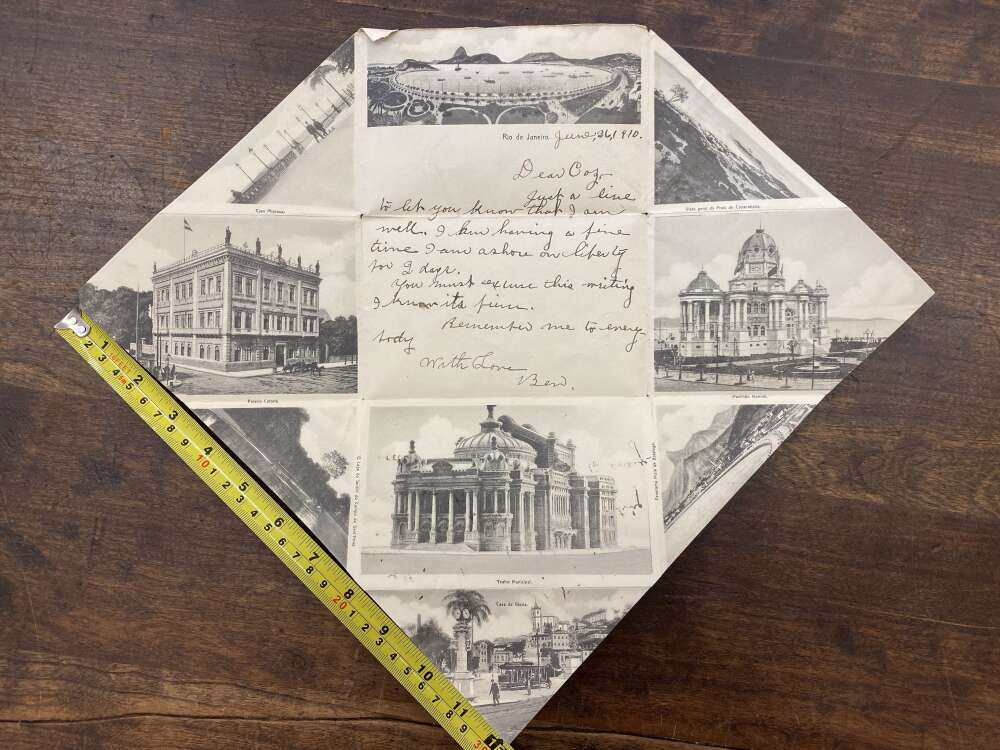 Rio de Janeiro, June, 26, 1910.
Dear Coz,
Just a line
to let you know that I am
well. I am having a fine
time I am ashore on liberty
for 2 days.
You must excuse this writing
I know its fierce.
Remember me to every
body
With Love
Ben.
Caes Pharoux.
Vista geral da Praia de Copacabana.
Palacio Cattete.
Pavilhão Monroe.
Theatro Municipal.
Caes da Gloria.
1 2 3 4 5 6 7 8 9 10 11
10 20 30